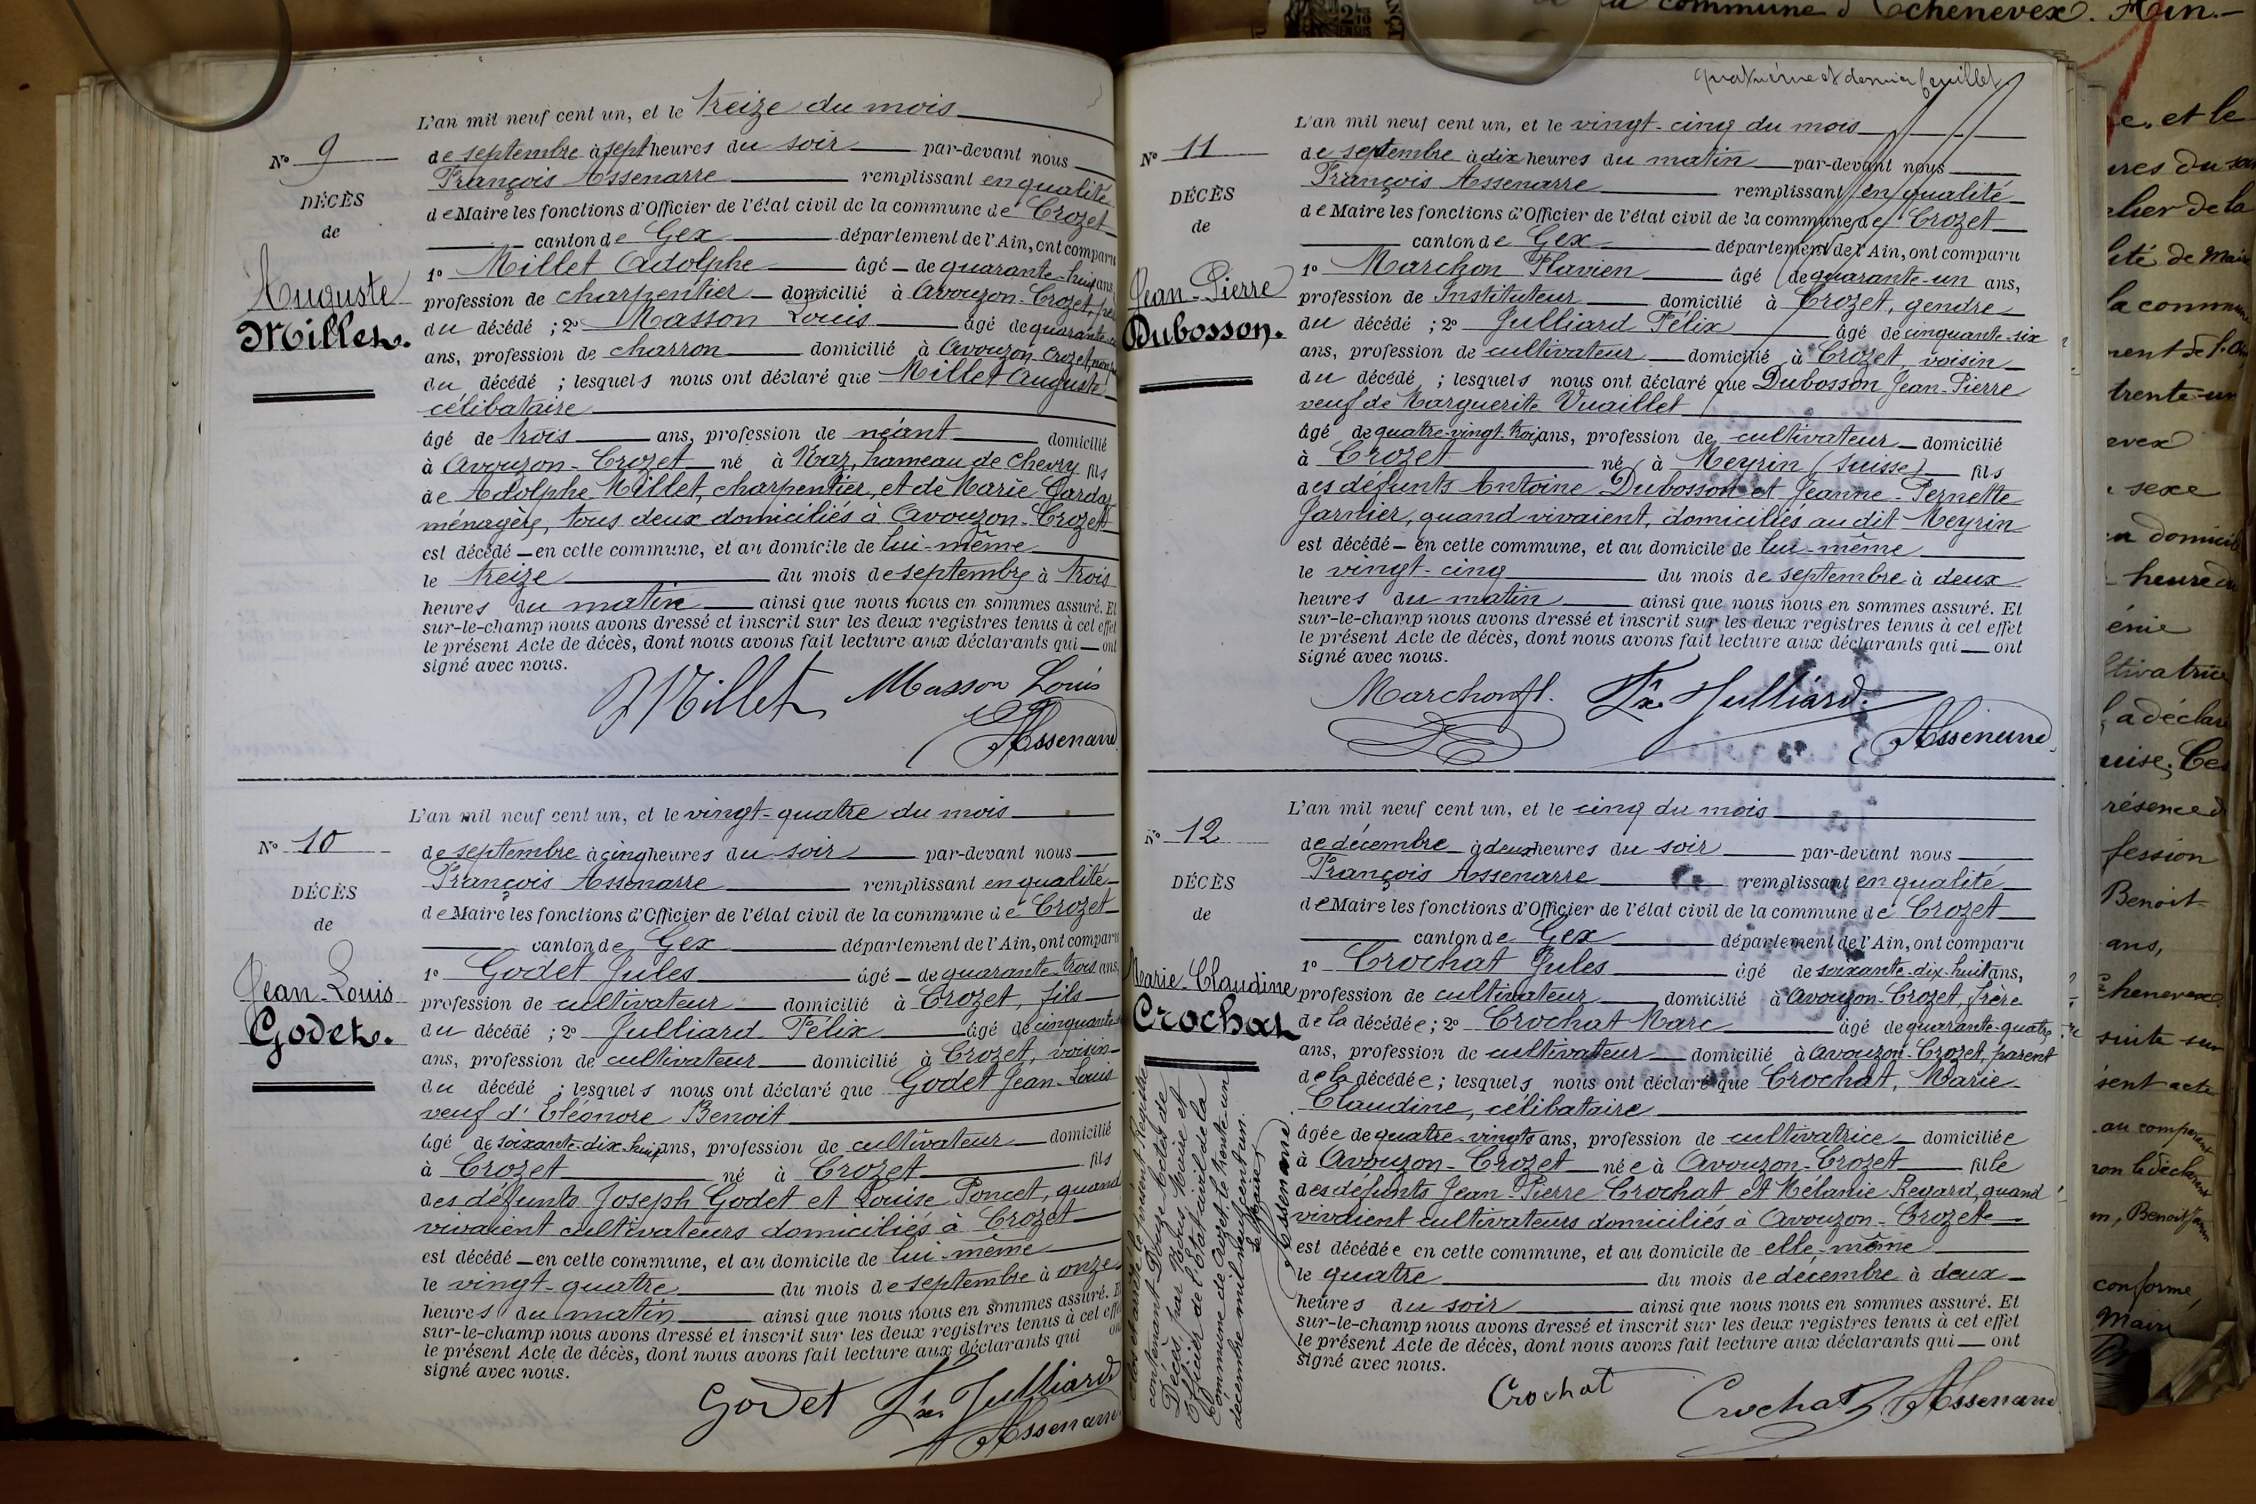 L'an mil neuf cent un, et le treize du mois
N° 9
de septembre à sept heures du soir par-devant nous
François Assenarre remplissant en qualité
DÉCÈS
de Maire les fonctions d'Officier de l'état civil de la commune de Crozet
de
canton de Gex département de l'Ain, ont comparu
1° Millet Adolphe âgé de quarante-huit ans,
Auguste
Millet.
profession de charpentier domicilié à Avouzon-Crozet, père
du décédé ; 2° Masson Louis âgé de quarante
ans, profession de charron domicilié à Avouzon Crozet,
du décédé ; lesquels nous ont déclaré que Millet Auguste
célibataire
âgé de trois ans, profession de néant domicilié
à Avouzon-Crozet né à Naz, hameau de Chevry fils
de Adolphe Millet, charpentier, et de Marie
ménagère, tous deux domiciliés à Avouzon-Crozet
est décédé en cette commune, et au domicile de lui-même
le treize du mois de septembre à trois
heures du matin ainsi que nous nous en sommes assuré. Et
sur-le-champ nous avons dressé et inscrit sur les deux registres tenus à cet effet
le présent Acte de décès, dont nous avons fait lecture aux déclarants qui ont
signé avec nous.
Millet Masson Louis
Assenarre
L'an mil neuf cent un, et le vingt-quatre du mois
N° 10
de septembre à cinq heures du soir par-devant nous
François Assenarre remplissant en qualité
DÉCÈS
de Maire les fonctions d'Officier de l'état civil de la commune de Crozet
de
canton de Gex département de l'Ain, ont comparu
1° Godet Jules âgé de quarante-trois ans,
Jean-Louis
Godet.
profession de cultivateur domicilié à Crozet, fils
du décédé ; 2° Julliard Félix âgé de cinquante
ans, profession de cultivateur domicilié à Crozet, voisin
du décédé ; lesquels nous ont déclaré que Godet Jean-Louis
veuf d'Eléonore Benoit
âgé de soixante-dix-huit ans, profession de cultivateur domicilié
à Crozet né à Crozet fils
des défunts Joseph Godet et Louise Poncet, quand
vivaient cultivateurs domiciliés à Crozet
est décédé en cette commune, et au domicile de lui-même
le vingt-quatre du mois de septembre à onze
heures du matin ainsi que nous nous en sommes assuré. Et
sur-le-champ nous avons dressé et inscrit sur les deux registres tenus à cet effet
le présent Acte de décès, dont nous avons fait lecture aux déclarants qui ont
signé avec nous.
Godet Fx Julliard
Assenarre
quatrième et dernier feuillet
L'an mil neuf cent un, et le vingt-cinq du mois
N° 11
de septembre à dix heures du matin par-devant nous
François Assenarre remplissant en qualité
DÉCÈS
de Maire les fonctions d'Officier de l'état civil de la commune de Crozet
de
canton de Gex département de l'Ain, ont comparu
1° Marchon Flavien âgé de quarante-un ans,
Jean-Pierre
Dubosson.
profession de Instituteur domicilié à Crozet, gendre
du décédé ; 2° Julliard Félix âgé de cinquante-six
ans, profession de cultivateur domicilié à Crozet, voisin
du décédé ; lesquels nous ont déclaré que Dubosson Jean-Pierre
veuf de Marguerite Vuaillet
âgé de quatre-vingt-trois ans, profession de cultivateur domicilié
à Crozet né à Meyrin (Suisse) fils
des défunts Antoine Dubosson et Jeanne-Pernette
Jarnier, quand vivaient, domiciliés au dit Meyrin
est décédé en cette commune, et au domicile de lui-même
le vingt-cinq du mois de septembre à deux
heures du matin ainsi que nous nous en sommes assuré. Et
sur-le-champ nous avons dressé et inscrit sur les deux registres tenus à cet effet
le présent Acte de décès, dont nous avons fait lecture aux déclarants qui ont
signé avec nous.
Marchon fl. Fx Julliard
Assenarre
L'an mil neuf cent un, et le cinq du mois
N° 12
de décembre à deux heures du soir par-devant nous
François Assenarre remplissant en qualité
DÉCÈS
de Maire les fonctions d'Officier de l'état civil de la commune de Crozet
de
canton de Gex département de l'Ain, ont comparu
1° Crochat Jules âgé de soixante-dix-huit ans,
Marie-Claudine
Crochat
profession de cultivateur domicilié à Avouzon-Crozet, frère
de la décédée ; 2° Crochat Marc âgé de quarante-quatre
ans, profession de cultivateur domicilié à Avouzon-Crozet, parent
de la décédée ; lesquels nous ont déclaré que Crochat, Marie
Claudine, célibataire
âgée de quatre-vingts ans, profession de cultivatrice domiciliée
à Avouzon-Crozet née à Avouzon-Crozet fille
des défunts Jean-Pierre Crochat et Mélanie Regard, quand
vivaient cultivateurs domiciliés à Avouzon-Crozet
est décédée en cette commune, et au domicile de elle-même
le quatre du mois de décembre à deux
heures du soir ainsi que nous nous en sommes assuré. Et
sur-le-champ nous avons dressé et inscrit sur les deux registres tenus à cet effet
le présent Acte de décès, dont nous avons fait lecture aux déclarants qui ont
signé avec nous.
Crochat Crochat Assenarre
Clos et arrêté le présent Registre
contenant Douze Actes de
Décès, par Nous, Maire et
Officier de l'Etat civil de la
Commune de Crozet, le trente-un
décembre mil neuf cent un.
Le Maire,
Assenarre
commune d'Echenevex. Ain.
e, et le
ures du soir
elier de la
lité de Maire
la commune
ment de l'Ain
trente-un
evex
sexe
domicile
heure du
énie
ltivatrice
a déclaré
uise. Ces
résence d
fession
Benoit
ans,
Echenevex
suite
sent acte
au comparant
non le déclarant
conforme,
Maire